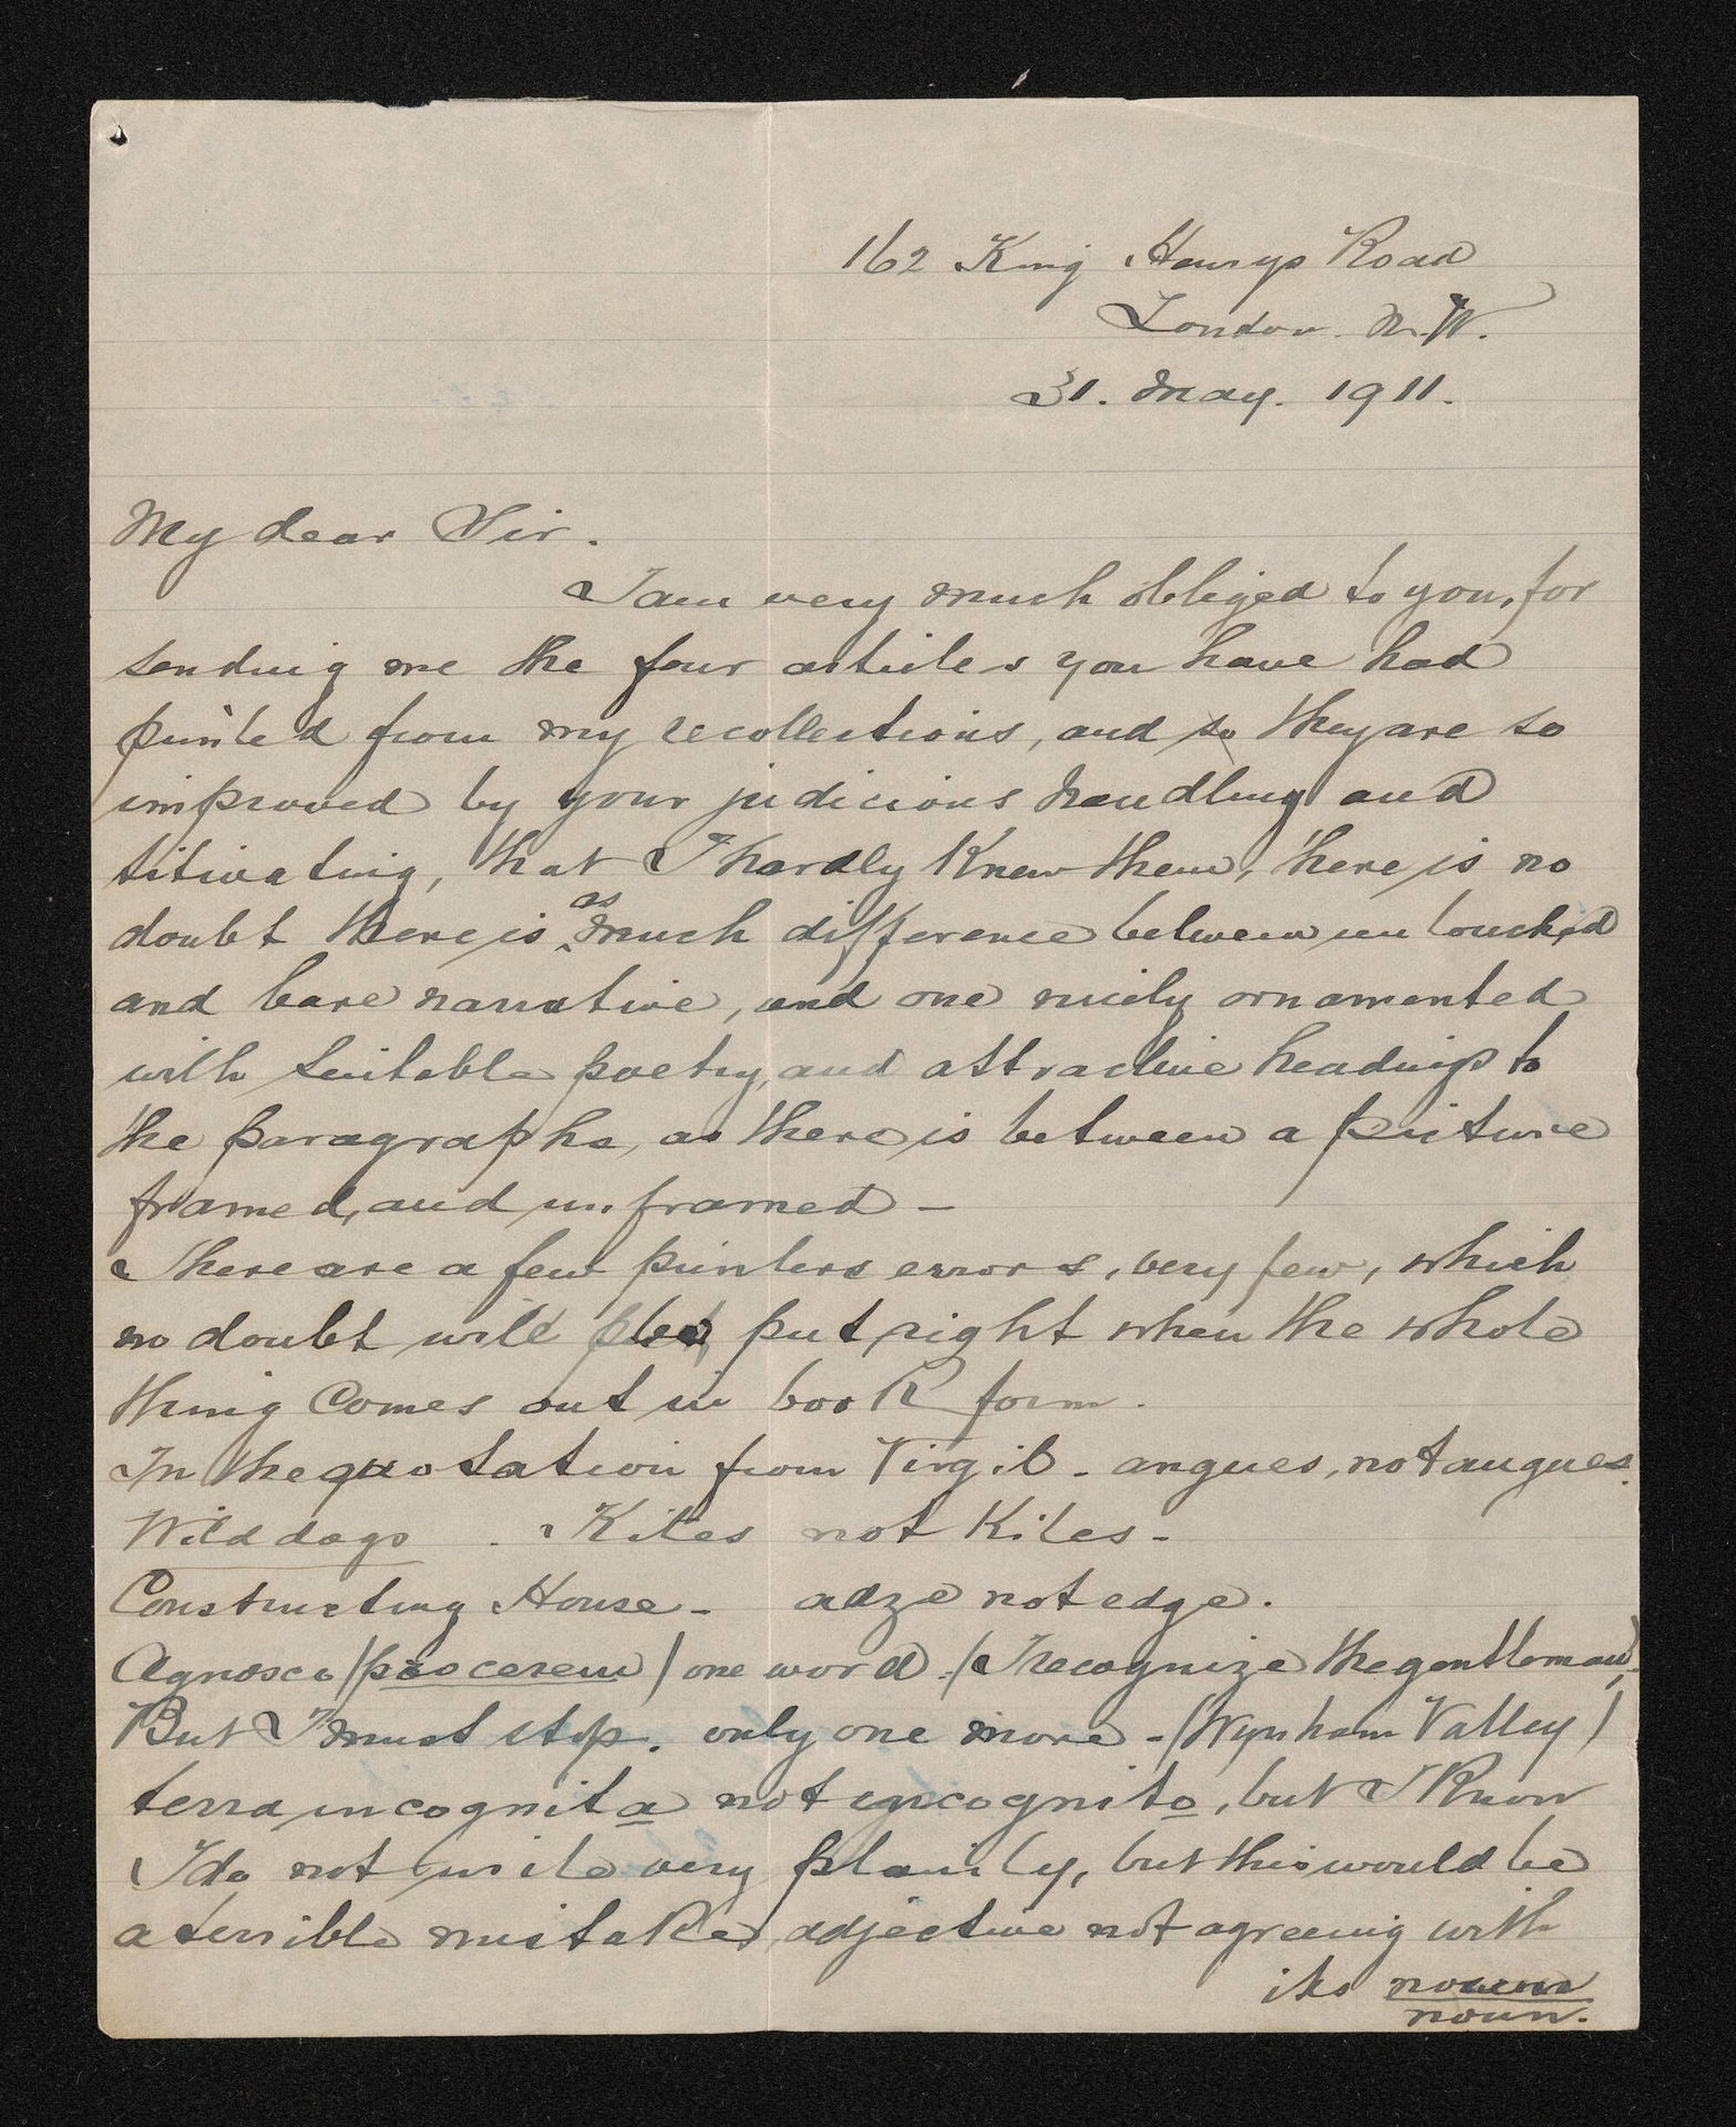 162 King Henrys Road
London. N.W.
31. May. 1911.
My dear Sir.
I am very much obliged to you, for
sending me the four articles you have had
printed from my recollections, and so they are so
improved by your judicious handling and
titivating, that I hardly knew them, there is no
doubt there is as much difference between un touched
and bare narrative, and one nicely ornamented
with suitable poetry, and attractive headings to
the paragraphs, as there is between a picture
framed, and un framed –
There are a few printers errors, very few, which
no doubt will be put right when the whole
thing comes out in book form.
In the quotation from Virgil - angues, not augues.
Wild dogs - Kites not Kiles -
Constructing House - adze not edge.
Agnosco (procerem) one word - (I recognize the gentleman)
But I must stop. only one more - (Wynham Valley)
terra incognita not incognito, but I know
I do not write very plainly, but this would be
a terrible mistake, adjective not agreeing with
its noun
noun.